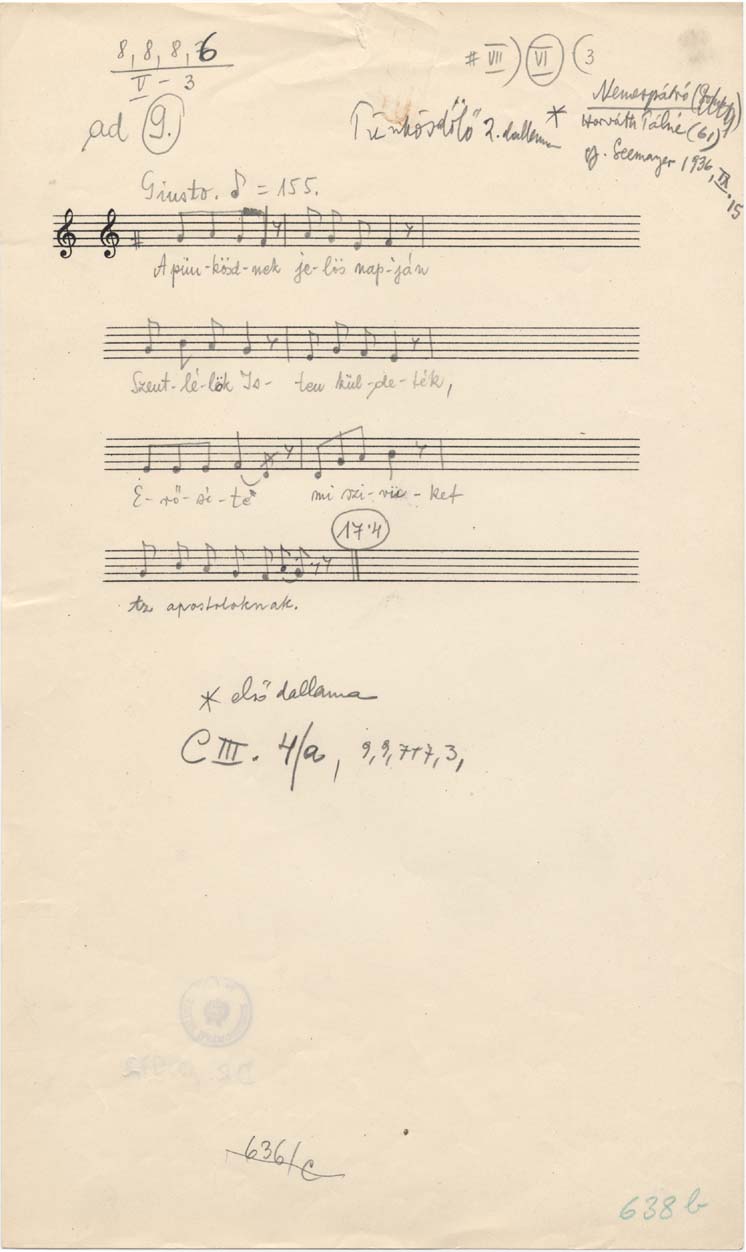 8, 8, 8, 6
V - 3
# VII) VI (3
ad 9.
Pünkösdölő 2. dallama *
Nemespátró
Horváth Pálné (61)
gy. Seemayer 1936, IX. 15
Giusto. ♪ = 155.
A pün-kösd-nek je-lös nap-ján
Szent-lé-lök Is- ten kül-de-ték,
E-rő-sí-te mi szi-vü-ket
17.4
Az apostoloknak.
* első dallama
C III. 4/a, 9, 9, 7+7, 3,
636/c
638 b